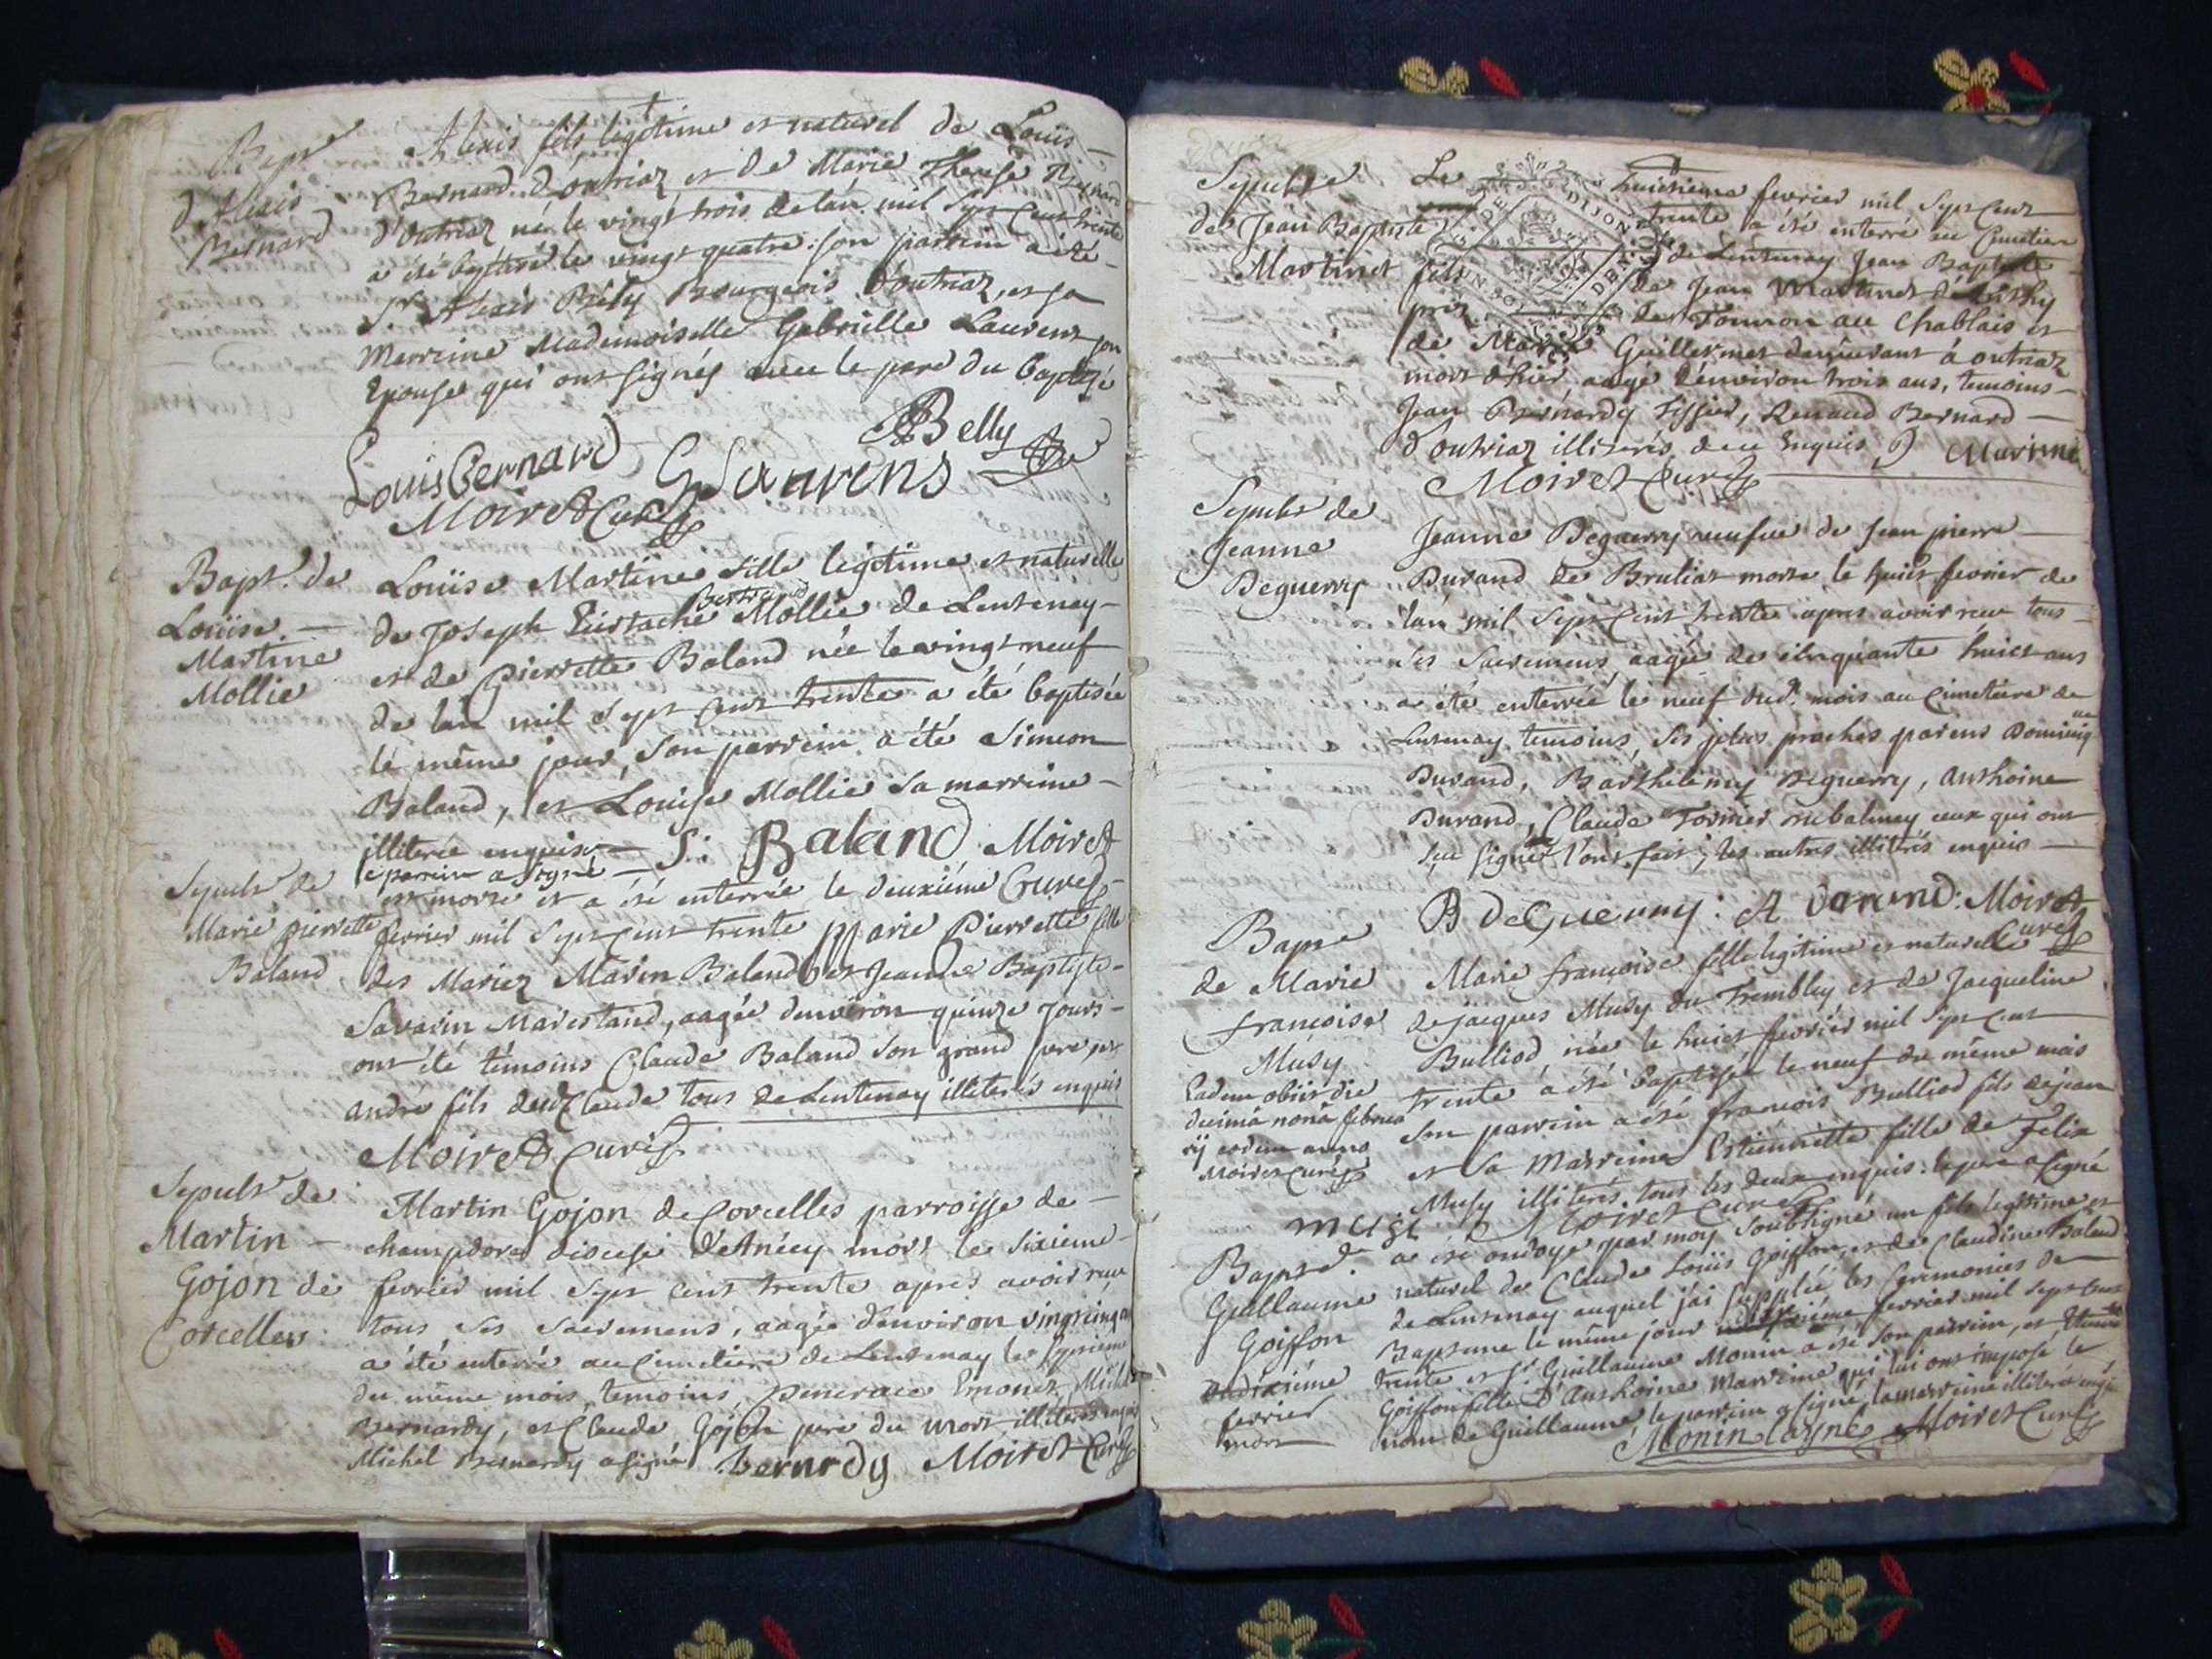 Bapt.
d'Alexis
Bernard
Alexis fils legitime et naturel de Loüis
Bernard d'outriaz et de Marie Therese
d'outriaz né le vingt trois de l'an mil sept cent trente
a été baptisé le vingt quatre: son parrein a été
Sr. Alexis Bely Bourgeois d'outriaz, et sa
Marreine Mademoiselle Gabrielle Laurens son
Epouse qui ont signés avec le pere du baptisé
ABelly
Louis Bernard G Laurens
Moiret Curé
Bapt. de
Loüise
Martine
Mollie
Loüise Martine fille legitime et naturelle
de Joseph Eustache Mollie de Lentenay
et de Pierrette Baland née le vingt neuf
de l'an mil sept cent trente a été baptisée
le même jour, son parrein a été Simeon
Baland, et Louise Mollie sa marreine
illiterée enquise S: Baland Moiret
le parrein a signé
Curé
Sepult de
Marie pierrette
Baland
est morte et a été enterrée le deuxiéme
fevrier mil sept cent trente Marie Pierrette fille
des Mariez Marin Baland et Jeanne Baptiste
Savarin, aagée d'environ quinze jours
ont été témoins Claude Baland son grand pere, et
André fils dud Claude tous de Lentenay illiterés enquis
Moiret Curé
Sepult de
Martin
Gojon de
Corcelles
Martin Gojon de Corcelles parroisse de
champdore diocese d'Annecy mort le sixieme
fevrier mil sept cent trente apres avoir reçu
tous ses sacremens, aagé d'environ vingt cinq ans
a été enterré au cimetiere de Lentenay le septieme
du même mois, temoins, Michel
Bernardy, et Claude Gojon pere du mort illiterés enquis
Michel Bernardy a signé bernrdy Moiret Curé
Sepult de
de Jean Baptiste
Martinet
Le huictieme fevrier mil sept cent
trente a été enterré au Cimetiere
de Lentenay Jean Baptiste
fils de Jean Martinet
prez de Tonnon au Chablais et
de Marie Guillermet demeurant à outriaz
mort d'hier aagé d'environ trois ans, temoins
Jean Bernardy tissier, Renaud Bernard
d'outriaz illiterés enquis
Moiret Curé
DIJON
Sepult de
Jeanne
Deguerry
Jeanne Deguerry veufve de Jean pierre
Durand de Bruliat morte le huict fevrier de
l'an mil sept cent trente apres avoir reçu tous
ses sacremens aagée de cinquante huict ans
a été enterrée le neuf dud. mois au cimetiere de
Lentenay temoins, ses plus proches parens Dominique
Durand, Barthelemy Deguerry, Anthoine
Durand, Claude ceux qui ont
sçu signer l'ont fait, les autres illiterés enquis
B DeGuerry: A Durand: Moiret
Curé
Bapt
de Marie
francoise
Musy
Eadem obiit die
decimâ nonâ februa
rij eodem anno
Moiret Curé
Marie françoise fille legitime et naturelle
de jacques Musy du Trembley et de Jacqueline
Bulliod née le huict fevrier mil sept cent
trente a été baptisée le neuf du même mois
son parrein a été francois Bulliod fils de jean
et sa Marreine Estiennette fille de Felix
Musy illiterés tous les deux enquis: le pere a signé
musi Moiret Curé
Bapt d.
Guillaume
Goiffon
dudixiéme
fevrier
mort
a été ondoyé par moy soubsigné un fils legitime et
naturel de Claude Loüis Goiffon, et de Claudine Baland
de Lentenay auquel j'ai supplée les ceremonies de
Baptême le même jour fevrier mil sept cent
trente et Sr. Guillaume Monin a été son parrein, et
Goiffon fille d'Anthoine Marreine qui lui ont imposé le
nom de Guillaume le parrein a signé, la marreine illiterée enquise
Monin layné Moiret Curé